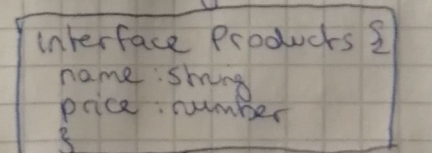 interface Products {
name : string
price : number
}